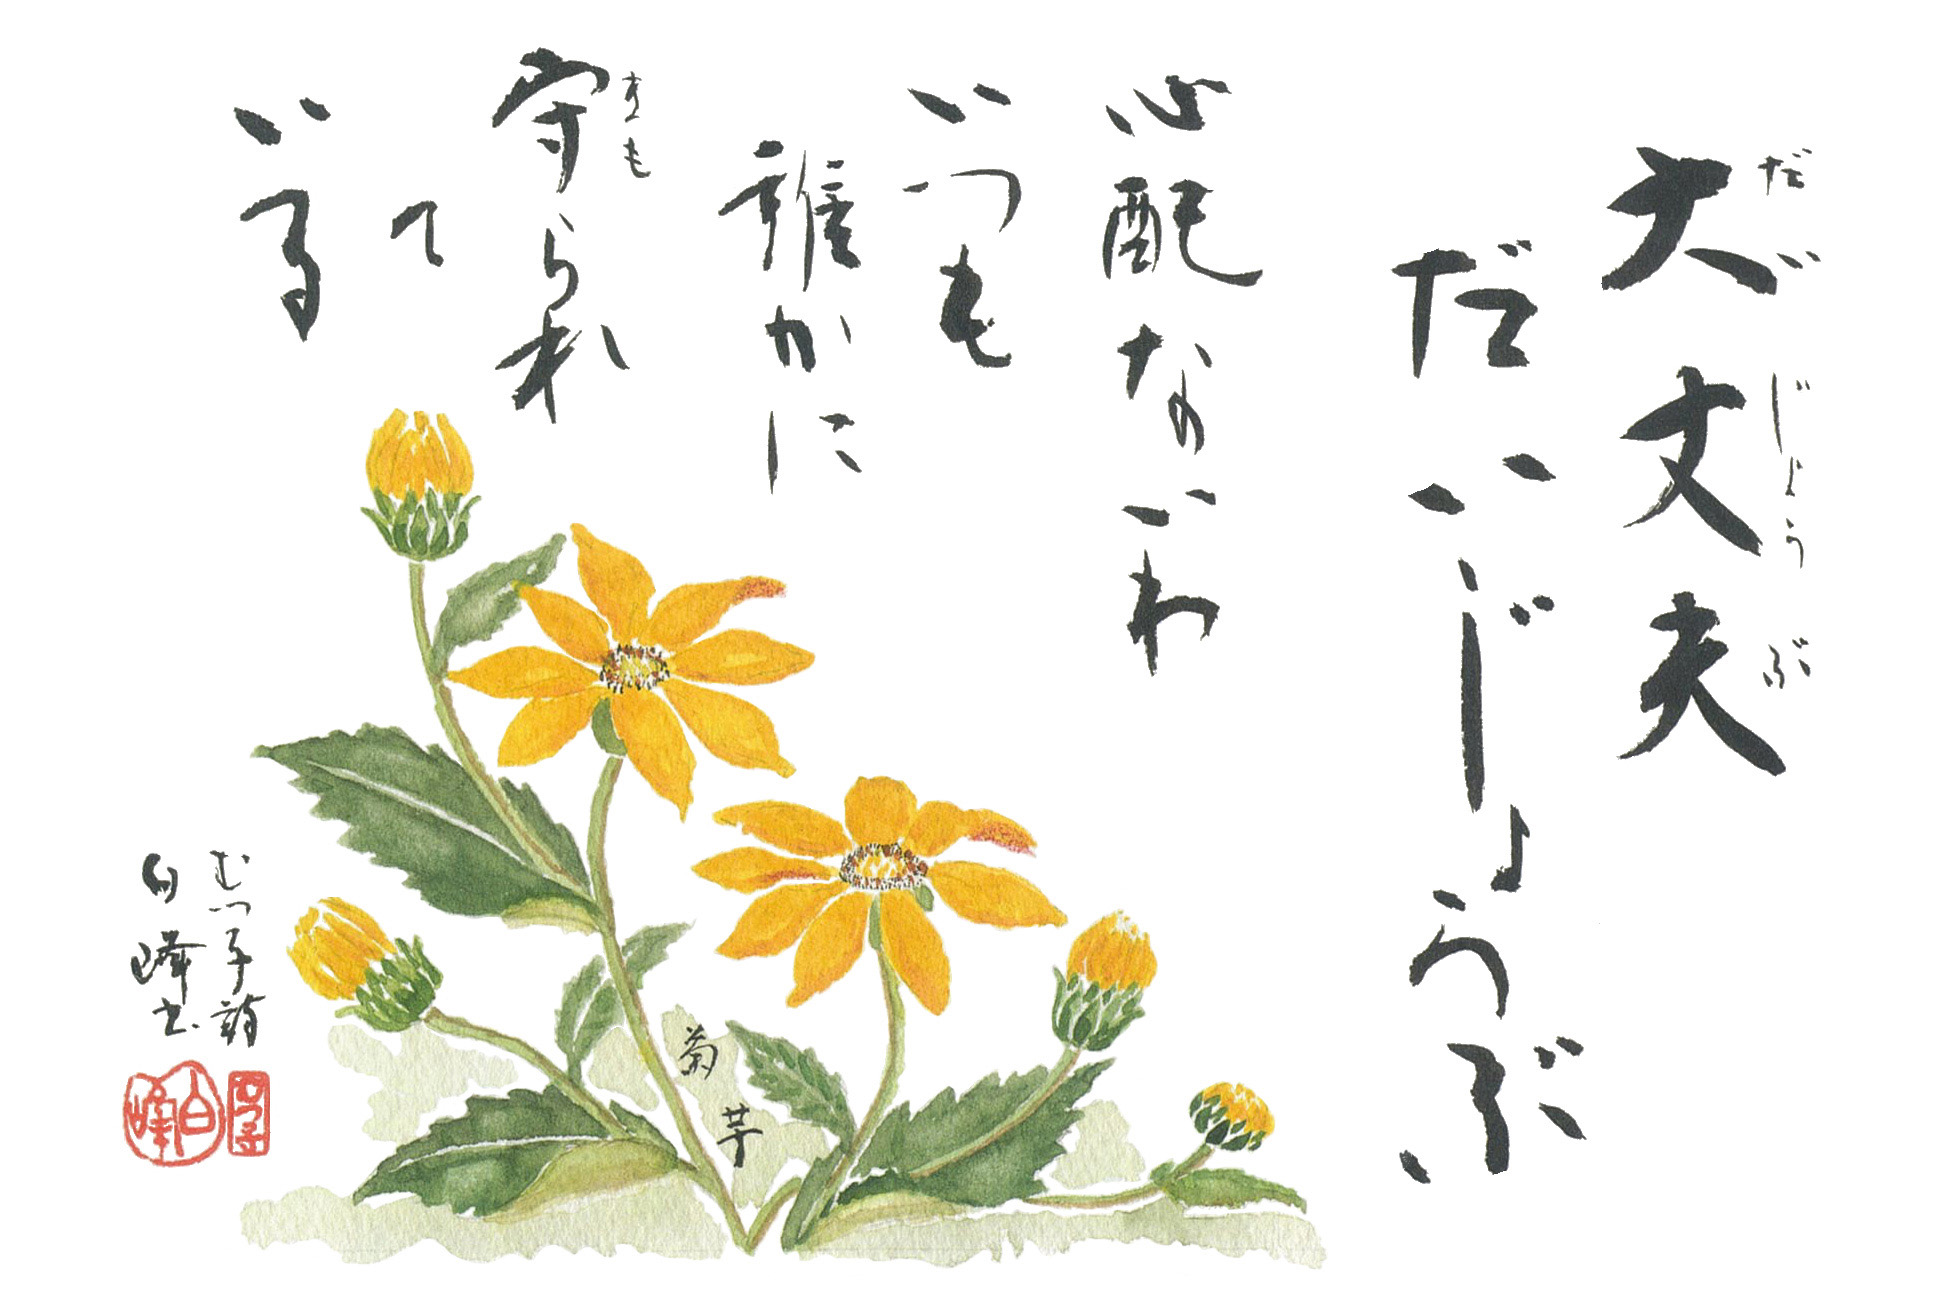 大丈夫
だいじょうぶ
だいじょうぶ
心配ないわ
いつも
誰かに
守られ
まも
て
いる
菊芋
むつ子詩
白峰書
白峰